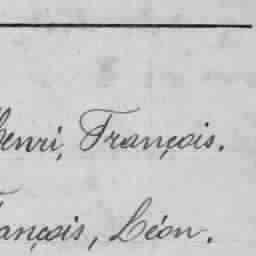 Henri, François.
François, Léon.